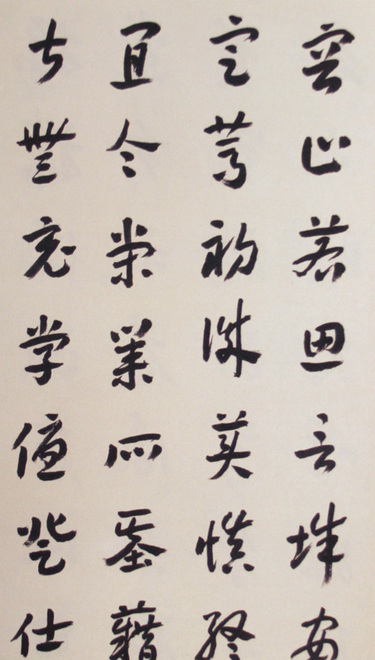 容止若思言辭安
定篤初誠美慎終
宜令榮業所基藉
甚無竟学優登仕